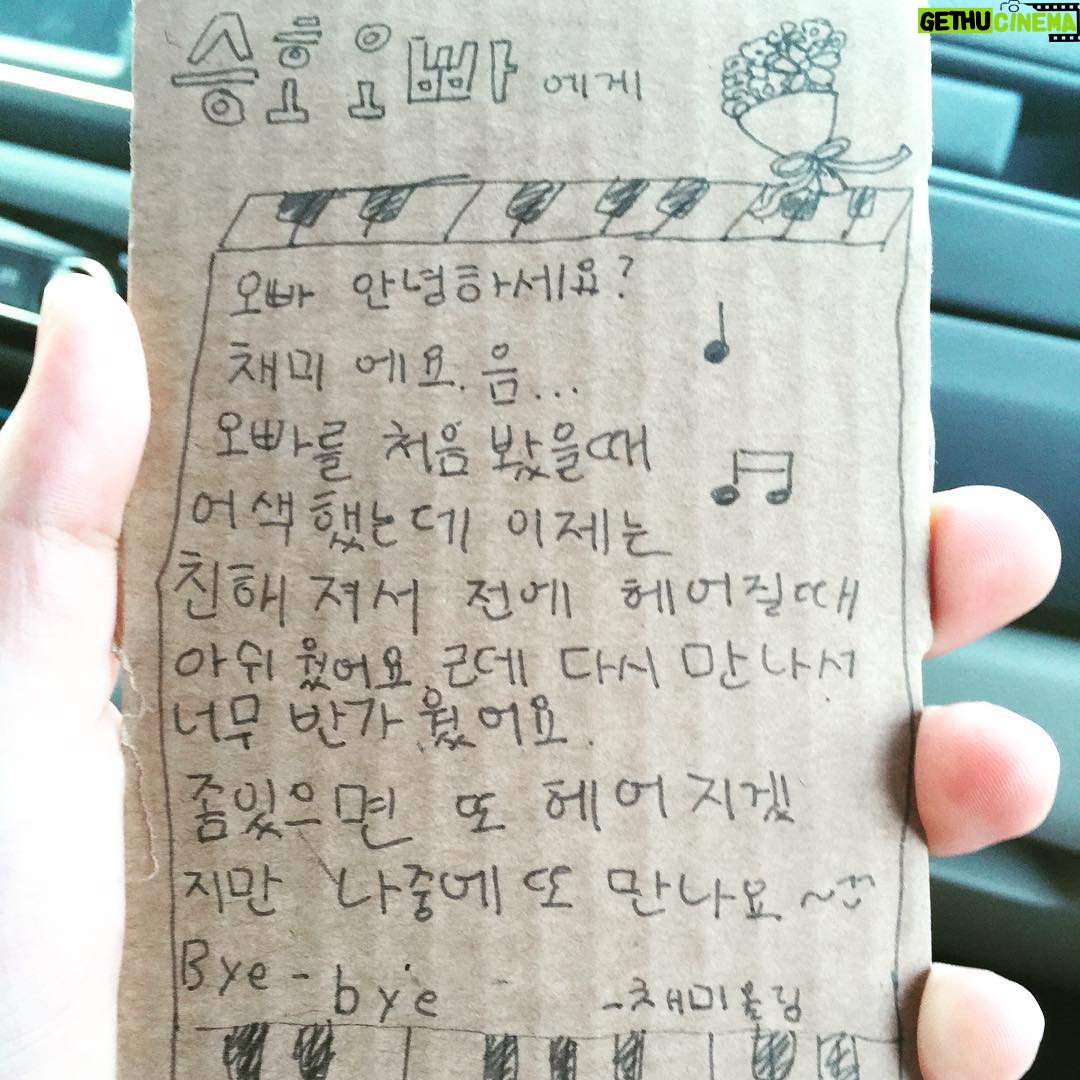 GETHUCINEMA
승호오빠에게
오빠 안녕하세요?
채미 에요. 음...
오빠를 처음 봤을때
어색했는데 이제는
친해 져서 전에 헤어질때
아쉬웠어요. 근데 다시 만나서
너무 반가웠어요.
좀있으면 또 헤어지겠
지만 나중에 또 만나요~
Bye-
bye
-채미올림